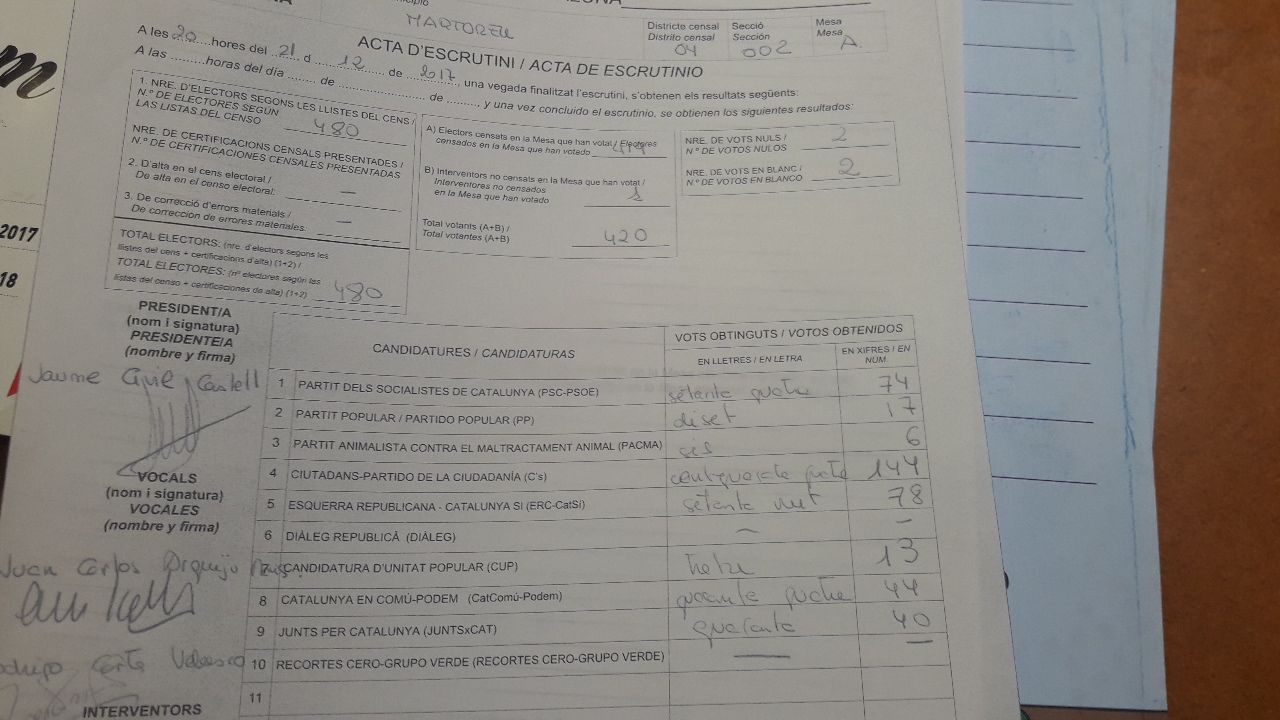 MARTORELL
Districte censal
Distrito censal
04
Secció
Sección
002
Mesa
Mesa
A
A les 20 hores del 21 d 12 de 2017, una vegada finalitzat l'escrutini, s'obtenen els resultats següents:
ACTA D'ESCRUTINI / ACTA DE ESCRUTINIO
A las ..........horas del día ........ de ........................ de .........., y una vez concluido el escrutinio, se obtienen los siguientes resultados:
1. NRE. D'ELECTORS SEGONS LES LLISTES DEL CENS /
N.º DE ELECTORES SEGÚN
LAS LISTAS DEL CENSO 480
NRE. DE CERTIFICACIONS CENSALS PRESENTADES /
N.º DE CERTIFICACIONES CENSALES PRESENTADAS
2. D'alta en el cens electoral /
De alta en el censo electoral: —
3. De correcció d'errors materials /
De corrección de errores materiales: —
TOTAL ELECTORS: (nre. d'electors segons les
llistes del cens + certificacions d'alta) (1+2) /
TOTAL ELECTORES: (nº electores según las
listas del censo + certificaciones de alta) (1+2) 480
A) Electors censats en la Mesa que han votat / Electores
censados en la Mesa que han votado
B) Interventors no censats en la Mesa que han votat /
Interventores no censados
en la Mesa que han votado 1
Total votants (A+B) /
Total votantes (A+B) 420
NRE. DE VOTS NULS /
N.º DE VOTOS NULOS 2
NRE. DE VOTS EN BLANC /
N.º DE VOTOS EN BLANCO 2
2017
18
PRESIDENT/A
(nom i signatura)
PRESIDENTE/A
(nombre y firma)
Jaume Castell
VOCALS
(nom i signatura)
VOCALES
(nombre y firma)
Juan Carlos
INTERVENTORS
CANDIDATURES / CANDIDATURAS
VOTS OBTINGUTS / VOTOS OBTENIDOS
EN LLETRES / EN LETRA
EN XIFRES / EN NÚM.
1 PARTIT DELS SOCIALISTES DE CATALUNYA (PSC-PSOE) setanta quatre 74
2 PARTIT POPULAR / PARTIDO POPULAR (PP) diset 17
3 PARTIT ANIMALISTA CONTRA EL MALTRACTAMENT ANIMAL (PACMA) sis 6
4 CIUTADANS-PARTIDO DE LA CIUDADANÍA (C's) 144
5 ESQUERRA REPUBLICANA - CATALUNYA SI (ERC-CatSí) setanta vuit 78
6 DIÀLEG REPUBLICÀ (DIÀLEG) — —
7 CANDIDATURA D'UNITAT POPULAR (CUP) tretze 13
8 CATALUNYA EN COMÚ-PODEM (CatComú-Podem) quaranta quatre 44
9 JUNTS PER CATALUNYA (JUNTSxCAT) quaranta 40
10 RECORTES CERO-GRUPO VERDE (RECORTES CERO-GRUPO VERDE) — —
11